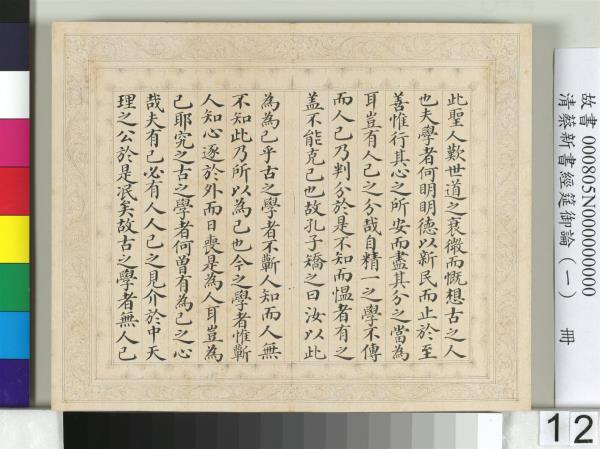 此聖人歎世道之衰微而慨想古之人
也夫學者何明明德以新民而止於至
善惟行其心之所安而盡其分之當為
耳豈有人己之分哉自精一之學不傳
而人己乃判分於是不知而慍者有之
蓋不能克己也故孔子矯之曰汝以此
為為己乎古之學者不蘄人知而人無
不知此乃所以為己也今之學者惟蘄
人知心逐於外而日喪是為人耳豈為
己耶究之古之學者何曾有為己之心
哉夫有己必有人人己之見介於中天
理之公於是泯矣故古之學者無人己
故書 000805N000000000
清蔡新書經筵御論（一） 冊
12